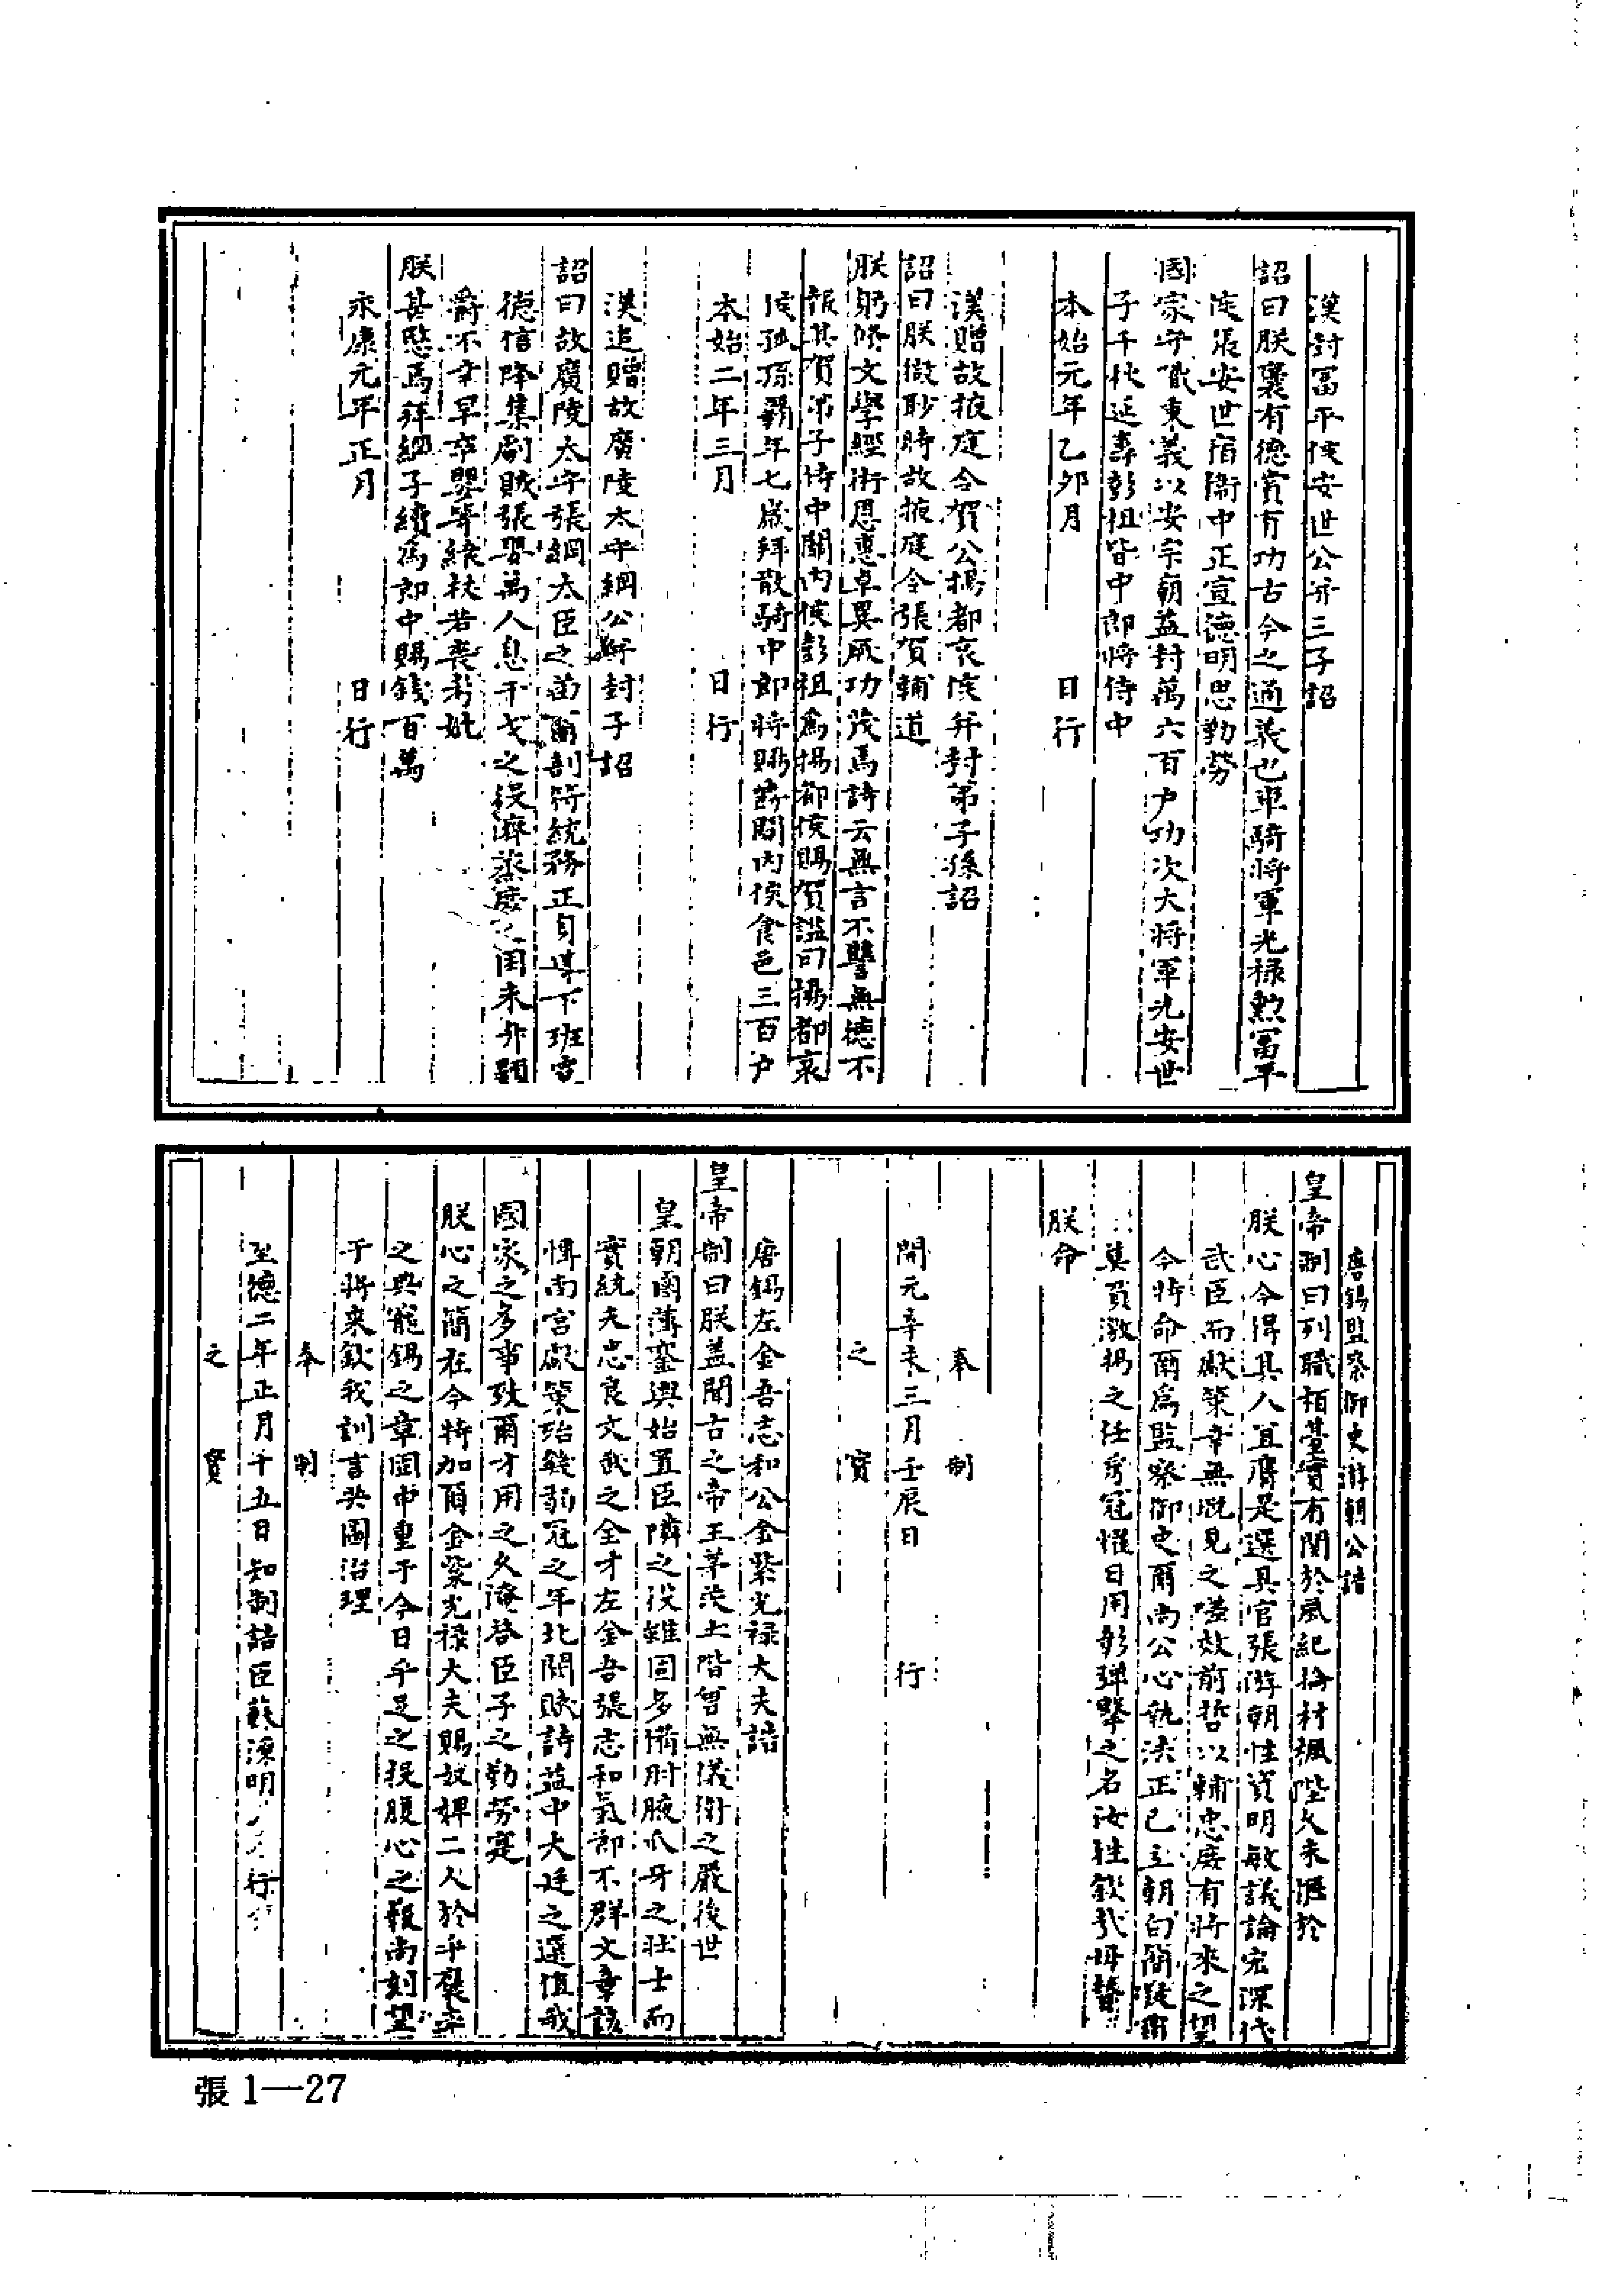 漢封富平侯安世公并三子詔
詔曰朕褒有德賞有功古今之通義也車騎將軍光祿勲富平
侯張安世宿衞中正宣德明恩勤勞
國家守職秉義以安宗廟益封萬六百户功次大將軍光安世
子千秋延壽彭祖皆中郎將侍中
本始元年乙夘月　日行
漢贈故掖庭令賀公揚都哀侯并封弟子孫詔
詔曰朕微眇時故掖庭令張賀輔道
朕躬修文學經術恩惠卓異厥功茂焉詩云無言不讐無德不
報其賀弟子侍中關内侯彭祖爲揚都侯賜賀謚曰揚都哀
侯孤孫霸年七歲拜散騎中郎將賜爵關内侯食邑三百户
本始二年三月　日行
漢追贈故廣陵太守綱公并封子詔
詔曰故廣陵太守張綱大臣之苗爾剖符統務正身導下班宣
德信降集劇賊張嬰萬人息干戈之役濟蒸庶之困未升顯
爵不幸早卒嬰等縗杖若喪考妣
朕甚愍焉拜綱子續爲郎中賜錢百萬
永康元年正月　日行
唐錫監察御史游朝公誥
皇帝制曰列職栢臺實有関於風紀掄材楓陛久未愜於
朕心今得其人宜膺是選具官張游朝性資明敏議論宏深代
武臣而獻策幸無旣見之嗟效前哲以輔忠庶有將來之望
今特命爾爲監察御史爾尚公心執法正己立朝白簡
莫負激揚之任豸冠惟日用彰彈擊之名汝往欽哉毋替
朕命
奉　制
開元辛未三月壬辰日　行
之　寳
唐錫左金吾志和公金紫光禄大夫誥
皇帝制曰朕盖聞古之帝王茅茨土階曾無儀衛之嚴後世
皇朝鹵薄鑾輿始置臣隣之役雖固多備肘腋爪牙之壯士而
實統夫忠良文武之全才左金吾張志和氣節不群文章該
博南宫獻策殆幾弱冠之年北闕賦詩益中大廷之選值我
國家之多事致爾才用之久淹眷臣子之勤勞寔
朕心之簡在今特加爾金紫光禄大夫賜奴婢二人於乎褒
之典寵錫之章固申重于今日手足之投腹心之報尚刻望
于將來欽我訓言共圖治理
奉　制
至德二年正月十五日知制誥臣蘇源明　行
之　寳
張1—27